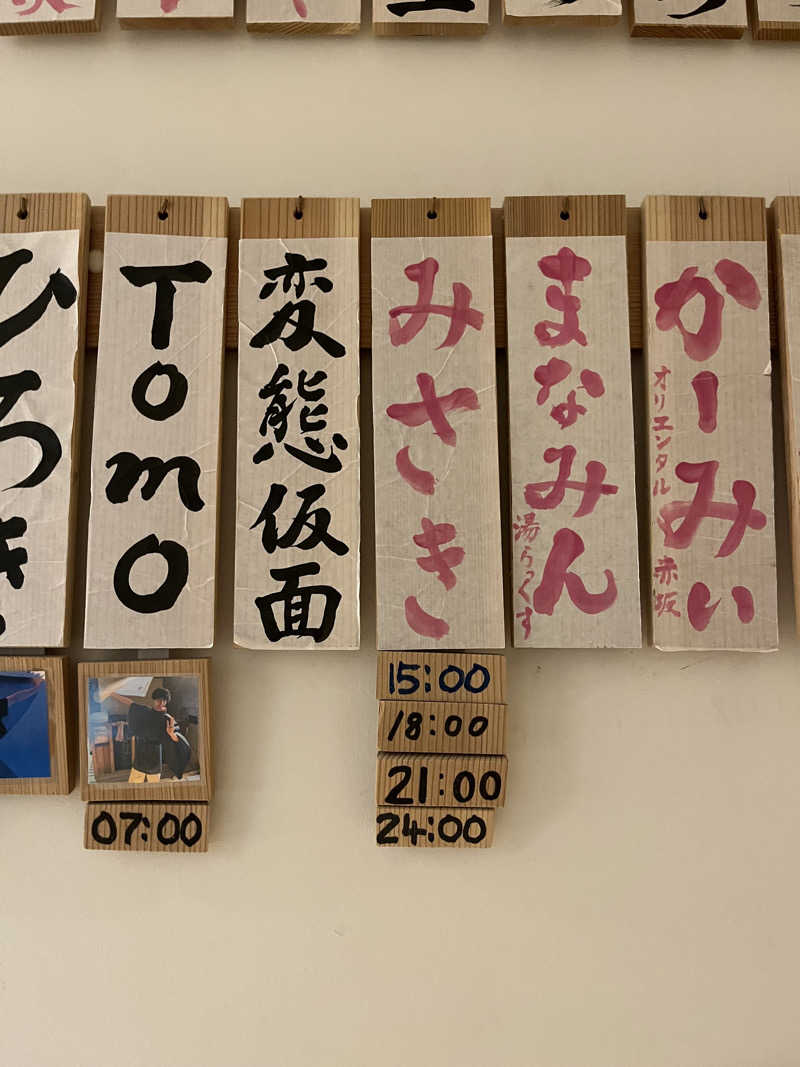 ひろき
Tomo
変態仮面
みさき
まなみん
湯らっくす
かーみぃ
オリエンタル
赤坂
07:00
15:00
18:00
21:00
24:00